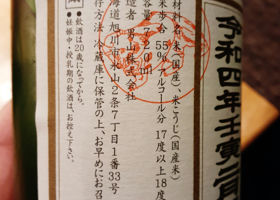 令和四年壬寅二月
材料名 米(国産)、米こうじ(国産米)
米歩合 55% アルコール分 17度以上18度
容量 720ml
造者 男山株式会社
海道旭川市永山2条7丁目1番33号
存方法 冷蔵庫に保管の上、お早めにお召
●飲酒は20歳になってから。
●妊娠中・授乳期の飲酒は、お控え下さい。